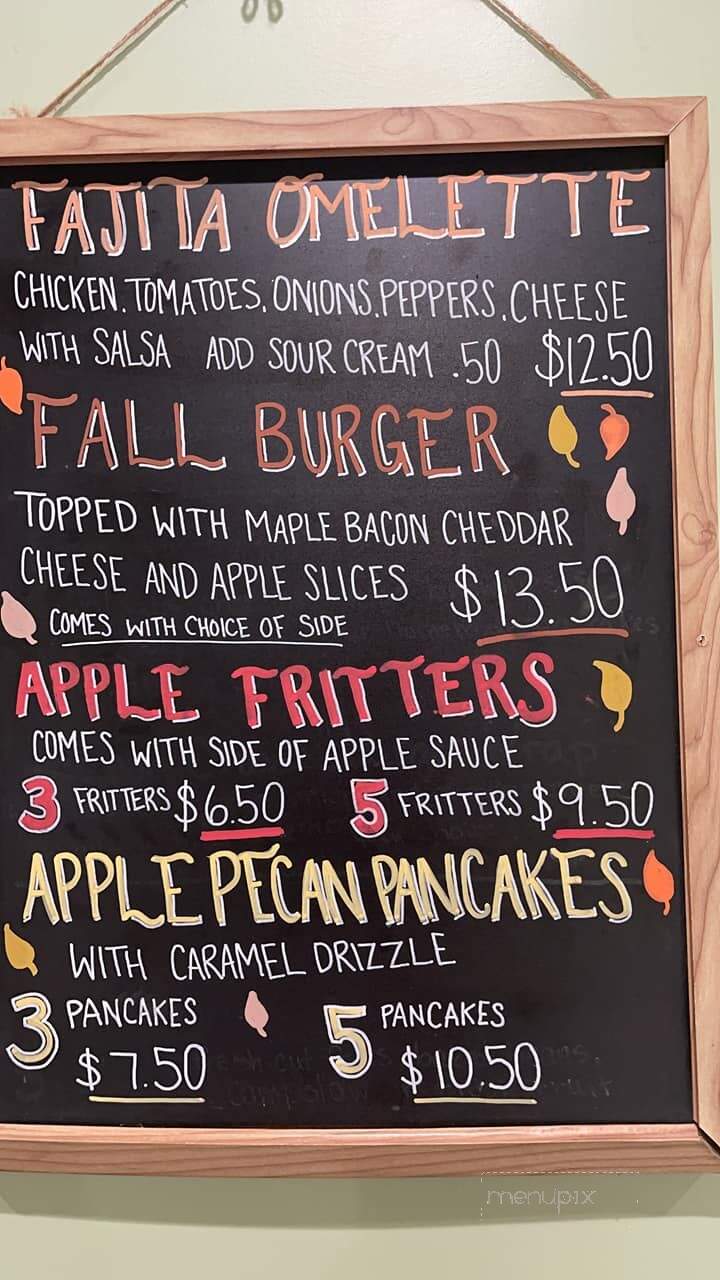 FAJITA OMELETTE
CHICKEN. TOMATOES. ONIONS. PEPPERS. CHEESE
WITH SALSA ADD SOUR CREAM .50 $12.50
FALL BURGER
TOPPED WITH MAPLE BACON CHEDDAR
CHEESE AND APPLE SLICES $13.50
COMES WITH CHOICE OF SIDE
APPLE FRITTERS
COMES WITH SIDE OF APPLE SAUCE
3 FRITTERS $6.50 5 FRITTERS $9.50
APPLE PECAN PANCAKES
WITH CARAMEL DRIZZLE
3 PANCAKES 5 PANCAKES
$7.50 $10.50
menupix